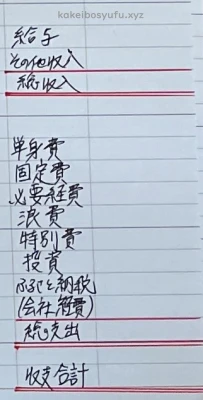 kokeibosyufu.xyz
給与
その他収入
総収入
単身費
固定費
必要経費
浪費
特別費
投資
ふるさと納税
(会社経費)
総支出
収支合計